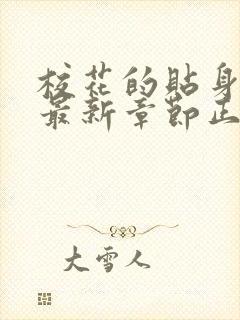 校花的贴身
最新章节正
大雪人